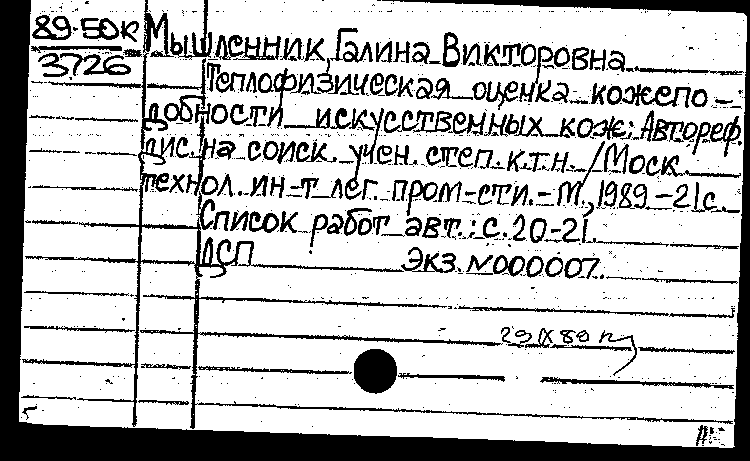 89-50к
3726
Мышленник, Галина Викторовна
Теплофизическая оценка кожепо-
добности искусственных кож: Автореф.
дис. на соиск. учен. степ. к.т.н. /Моск.
технол. ин-т лег. пром-сти.-М, 1989.-21с.
Список работ авт.: с. 20-21.
ДСП Экз. N000007.
29 IX 89